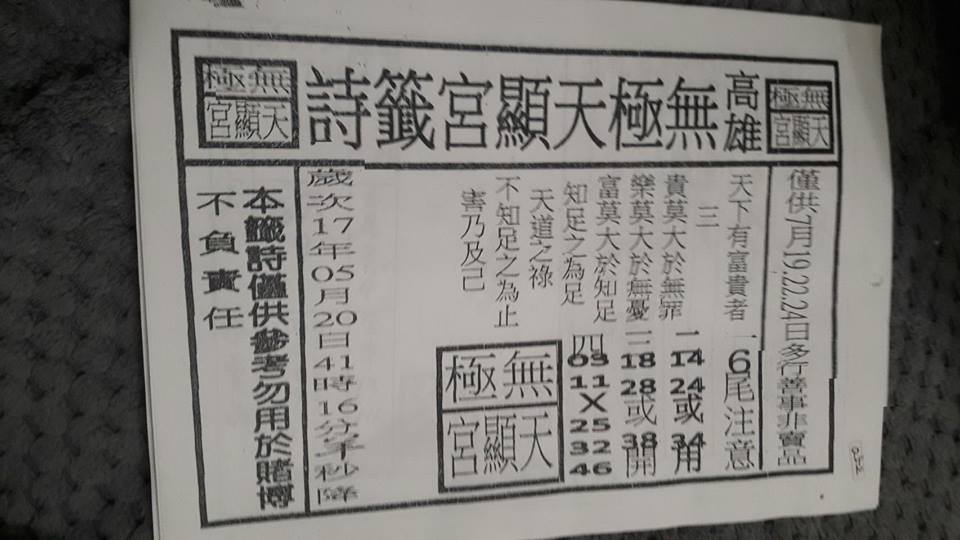 無極
天顯宮
高雄
無極天顯宮籤詩
無極
天顯宮
僅供7月19.22.24日多行善事非賣品
天下有富貴者
三
貴莫大於無罪
樂莫大於無憂
富莫大於知足
知足之為足
天道之祿
不知足之為止
害乃及己
一6尾注意
二14 24或34角
三18 28或38開
四03 11X25 32 46
無極
天顯宮
歲次17年05月20日41時16分羊秒降
本籤詩僅供參考勿用於賭博
不負責任